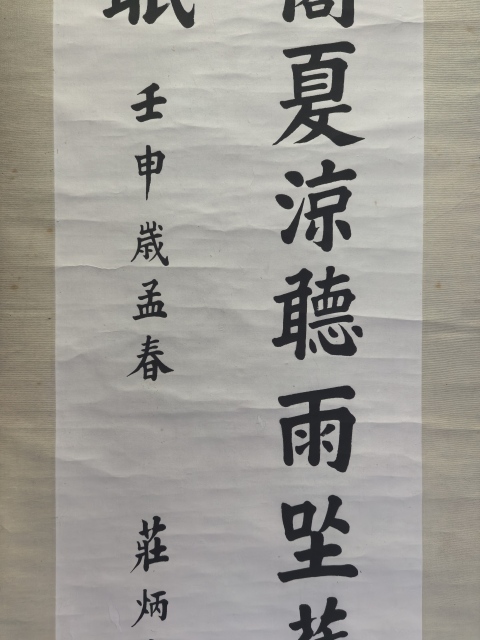 夏涼聽雨坐
壬申歲孟春
莊炳